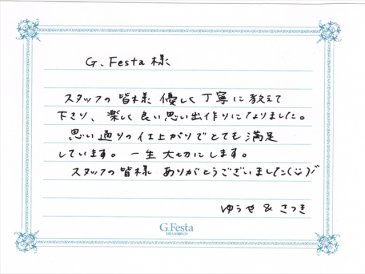 G. Festa 様
スタッフの皆様 優しく丁寧に教えて
下さり、楽しく良い思い出作りになりました。
思い通りの仕上がりでとても満足
しています。一生大切にします。
スタッフの皆様 ありがとうございました(¨)
ゆうせ & さつき
G.Festa